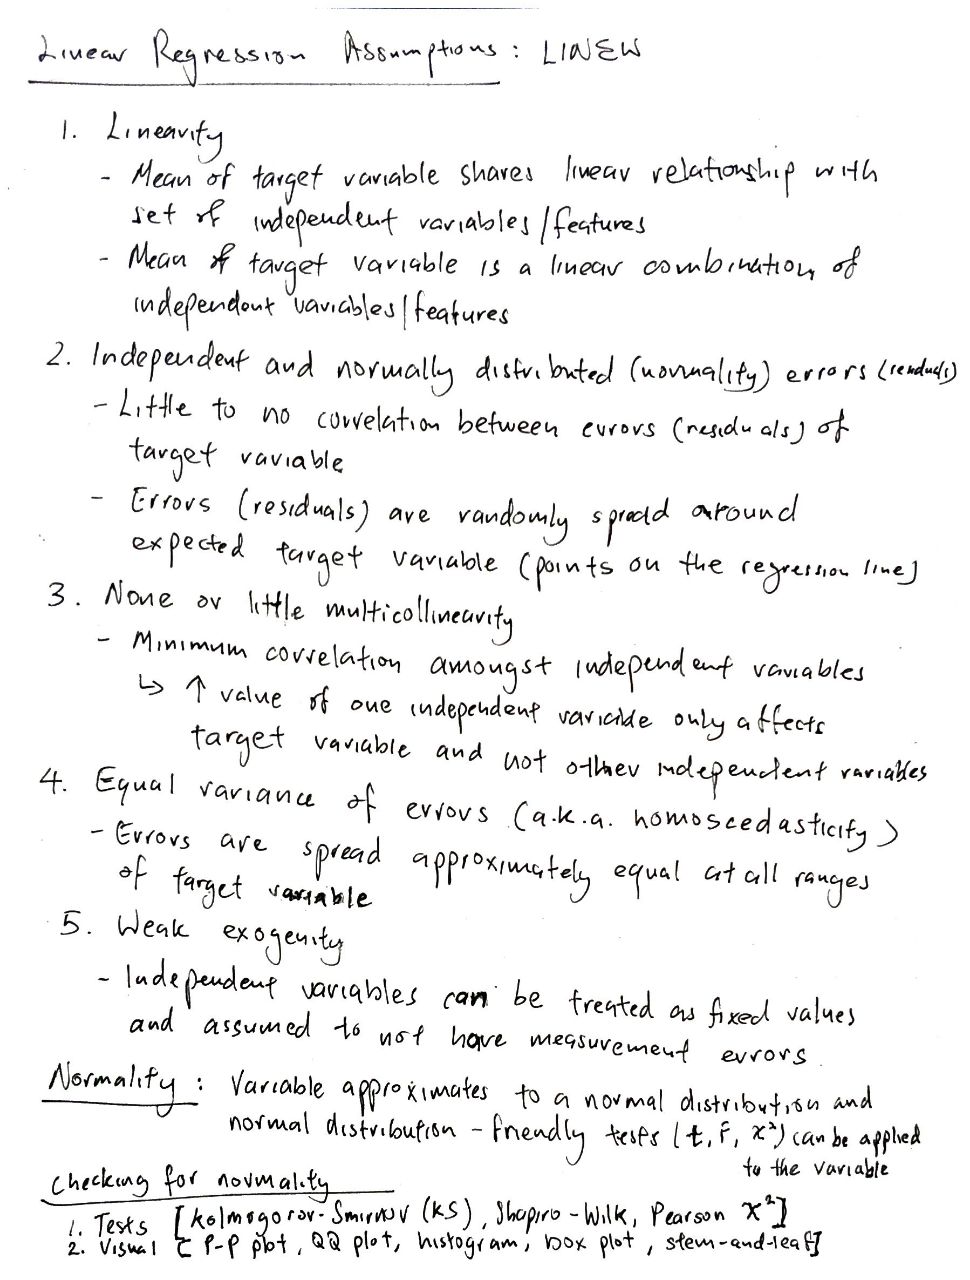 Linear Regression Assumptions: LINEW
1. Linearity
- Mean of target variable shares linear relationship with
set of independent variables/features
- Mean of target variable is a linear combination of
independent variables/features
2. Independent and normally distributed (normality) errors (residuals)
- Little to no correlation between errors (residuals) of
target variable
- Errors (residuals) are randomly spread around
expected target variable (points on the regression line)
3. None or little multicollinearity
- Minimum correlation amongst independent variables
↳ ↑ value of one independent variable only affects
target variable and not other independent variables
4. Equal variance of errors (a.k.a. homoscedasticity)
- Errors are spread approximately equal at all ranges
of target variable
5. Weak exogenity
- Independent variables can be treated as fixed values
and assumed to not have measurement errors.
Normality: Variable approximates to a normal distribution and
normal distribution - friendly tests (t, F, X²) can be applied
to the variable
Checking for normality
1. Tests [Kolmogorov-Smirnov (KS), Shapiro-Wilk, Pearson X²]
2. Visual [P-P plot, QQ plot, histogram, box plot, stem-and-leaf]